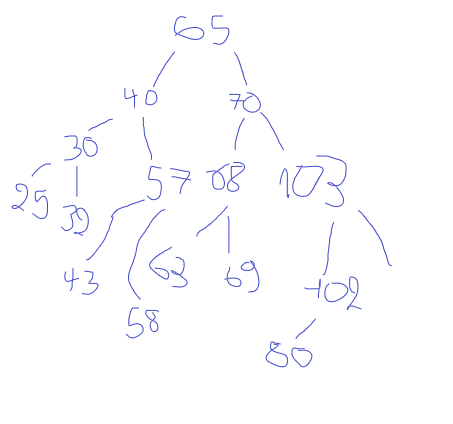 65
40 70
30 57 68 103
25 39 43 58 63 69 102
80